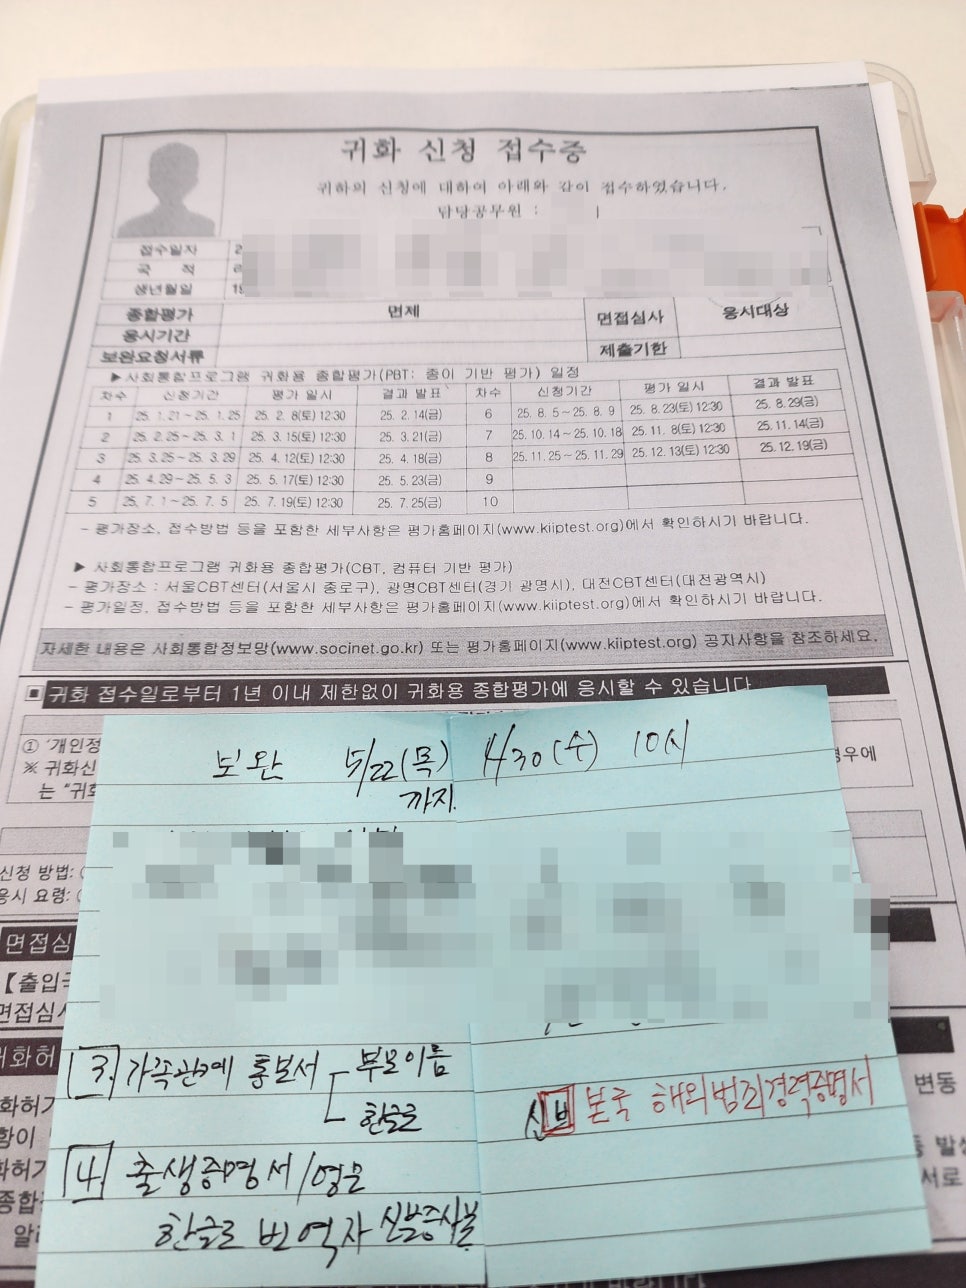 귀화 신청 접수증
귀하의 신청에 대하여 아래와 같이 접수하였습니다.
담당공무원 :
접수일자 2
국 적
생년월일 19
종합평가 면제 면접심사 응시대상
응시기간
보완요청서류 제출기한
▶사회통합프로그램 귀화용 종합평가(PBT: 종이 기반 평가) 일정
차수 신청기간 평가 일시 결과 발표 차수 신청기간 평가 일시 결과 발표
1 25. 1. 21 ~ 25. 1. 25 25. 2. 8(토) 12:30 25. 2. 14(금) 6 25. 8. 5 ~ 25. 8. 9 25. 8. 23(토) 12:30 25. 8. 29(금)
2 25. 2. 25 ~ 25. 3. 1 25. 3. 15(토) 12:30 25. 3. 21(금) 7 25. 10. 14 ~ 25. 10. 18 25. 11. 8(토) 12:30 25. 11. 14(금)
3 25. 3. 25 ~ 25. 3. 29 25. 4. 12(토) 12:30 25. 4. 18(금) 8 25. 11. 25 ~ 25. 11. 29 25. 12. 13(토) 12:30 25. 12. 19(금)
4 25. 4. 29 ~ 25. 5. 3 25. 5. 17(토) 12:30 25. 5. 23(금) 9
5 25. 7. 1 ~ 25. 7. 5 25. 7. 19(토) 12:30 25. 7. 25(금) 10
- 평가장소, 접수방법 등을 포함한 세부사항은 평가홈페이지(www.kiiptest.org)에서 확인하시기 바랍니다.
▶ 사회통합프로그램 귀화용 종합평가(CBT, 컴퓨터 기반 평가)
- 평가장소 : 서울CBT센터(서울시 종로구), 광명CBT센터(경기 광명시), 대전CBT센터(대전광역시)
- 평가일정, 접수방법 등을 포함한 세부사항은 평가홈페이지(www.kiiptest.org)에서 확인하시기 바랍니다.
자세한 내용은 사회통합정보망(www.socinet.go.kr) 또는 평가홈페이지(www.kiiptest.org) 공지사항을 참조하세요.
▣ 귀화 접수일로부터 1년 이내 제한없이 귀화용 종합평가에 응시할 수 있습니다
① '개인정
※ 귀화신 경우에
는 "귀화
보완 5/22(목) 4/30(수) 10시
까지.
신청 방법:
응시 요령:
면접심
【출입국
면접심사
귀화허
3. 가족관계 통보서 부모이름
한글로
신분 본국 해외범죄경력증명서
변동
4. 출생증명서/영문
한글로 번역자 신분증사본